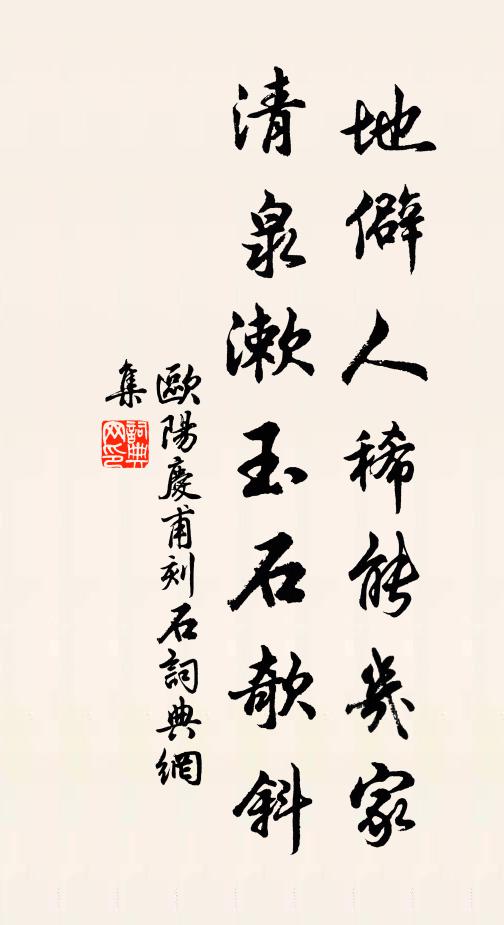 地僻人稀能幾家
清泉漱玉石欹斜
歐陽慶甫刻石詞典網
集
詞典網印